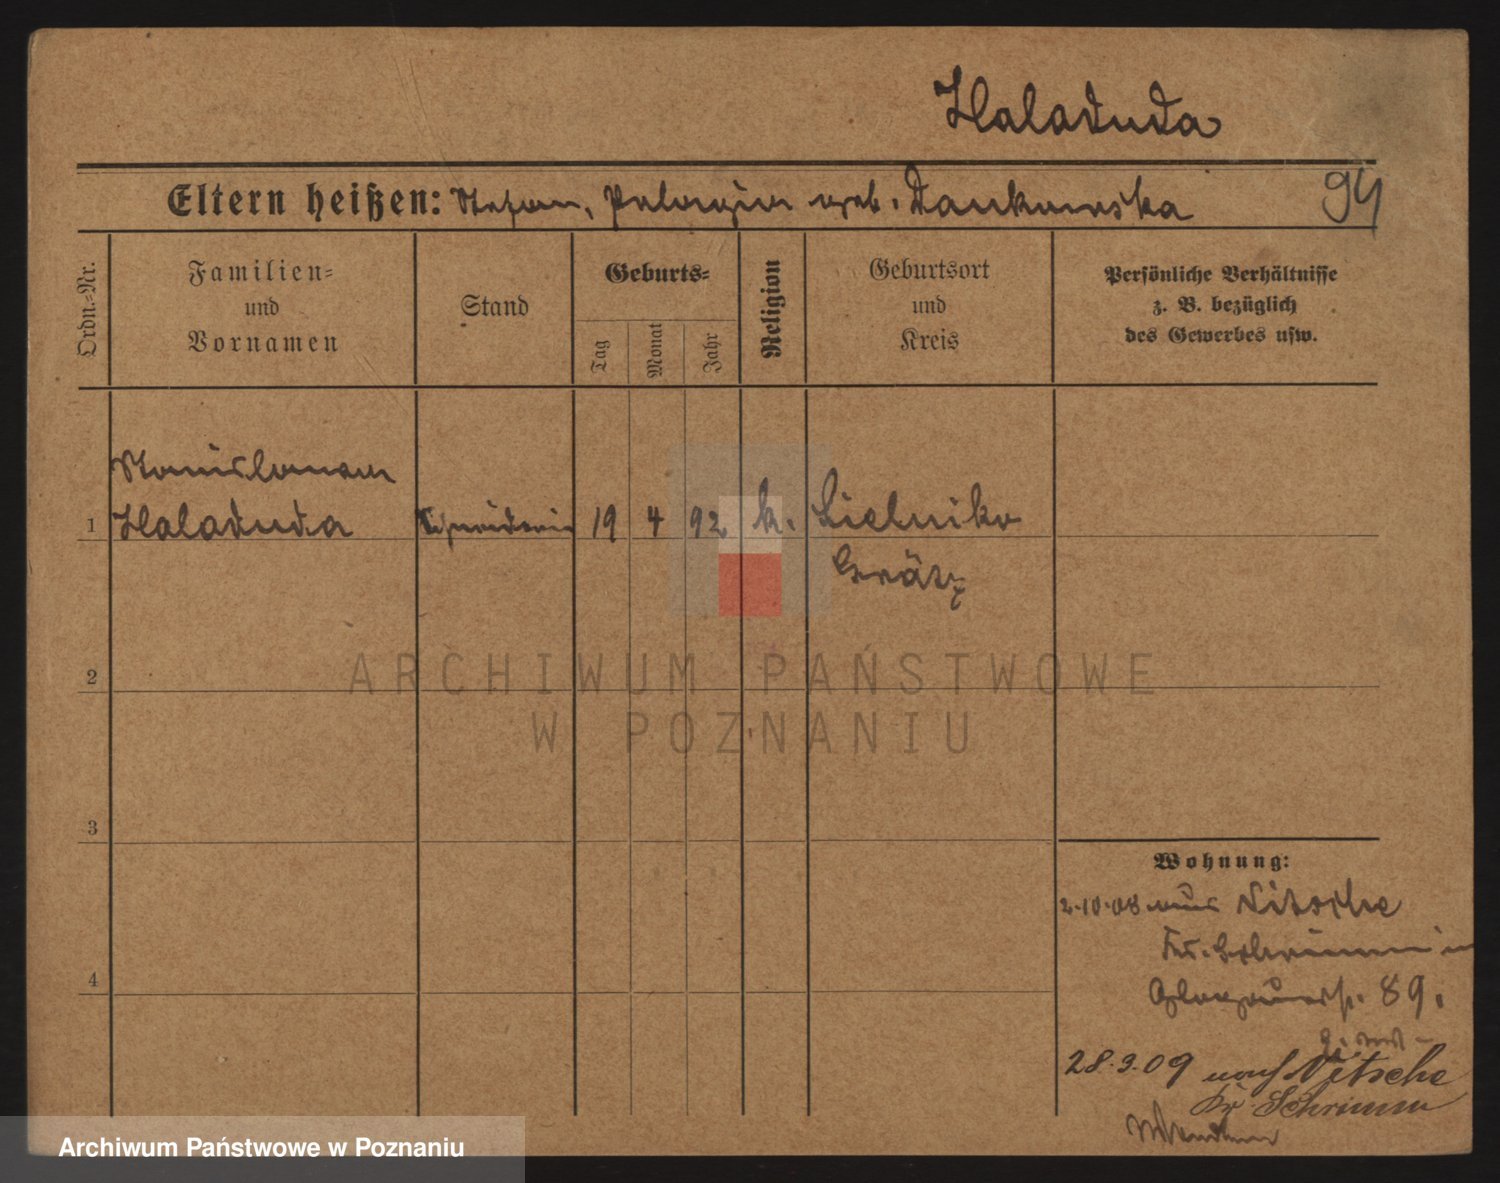 Haladuda
Eltern heißen: Stefan, Pelagia geb. Dankowska
94
Ordn.-Nr.
Familien=
und
Vornamen
Stand
Geburts=
Tag
Monat
Jahr
Religion
Geburtsort
und
Kreis
Persönliche Verhältnisse
z. B. bezüglich
des Gewerbes usw.
Stanislawa
1 Haladuda Schneiderin 19 4 92 k. Cielniko
Grätz
2
ARCHIWUM PAŃSTWOWE
W POZNANIU
3
Wohnung:
2.10.08 aus Nitsche
Kr. Schrimm
4
89.
28.9.09 nach Nitsche
Kr. Schrimm
Archiwum Państwowe w Poznaniu